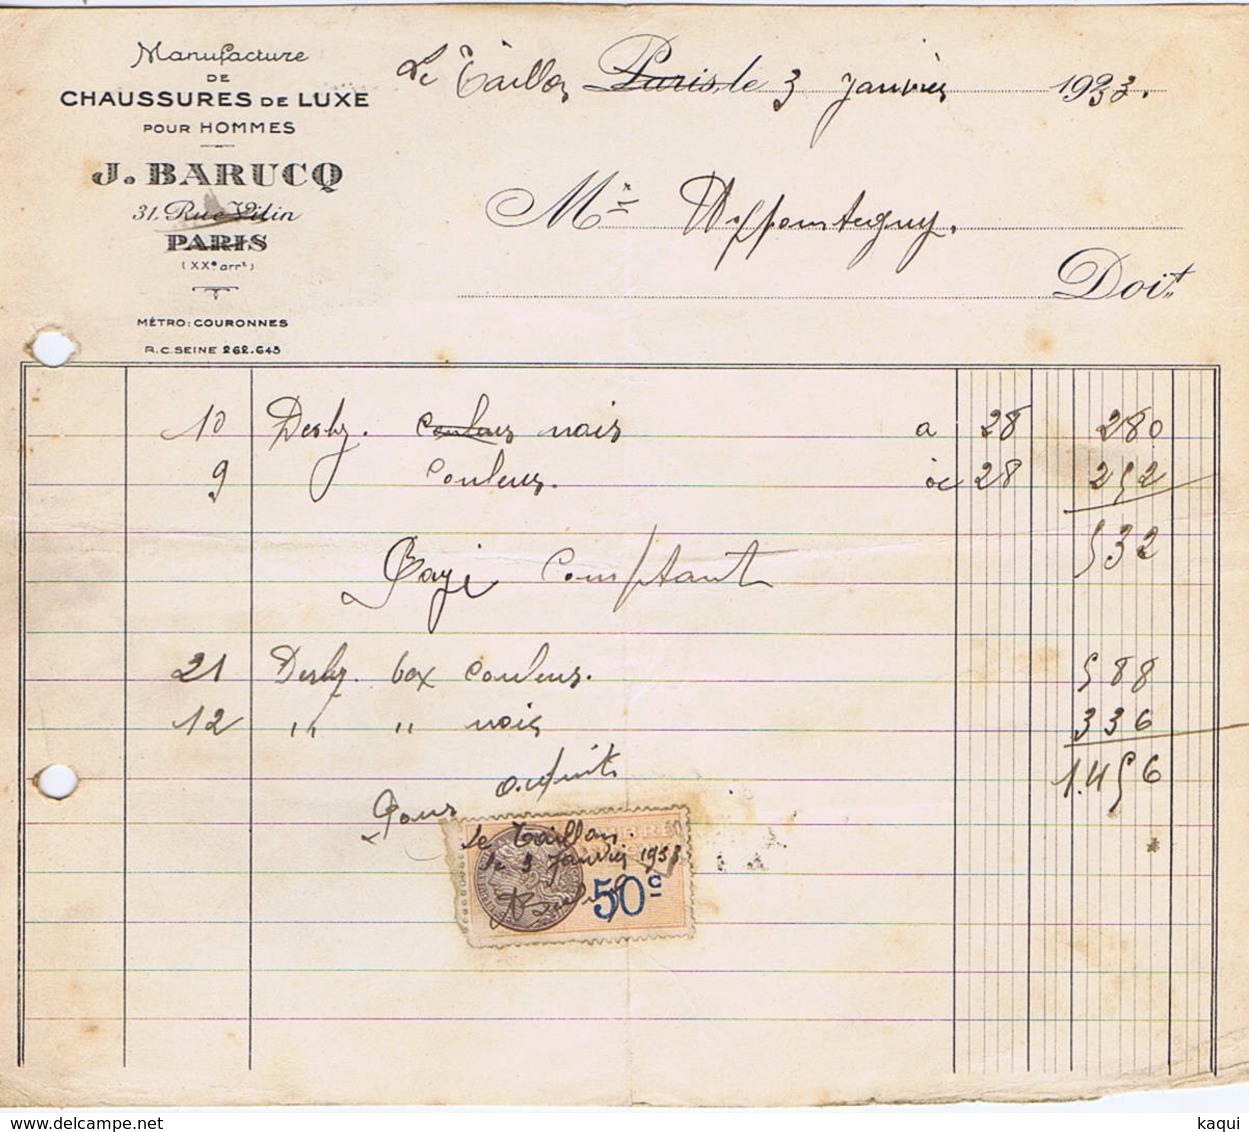 Manufacture
DE
CHAUSSURES DE LUXE
POUR HOMMES
J. BARUCQ
31. Rue Vilin
PARIS
(XXe arrt)
MÉTRO: COURONNES
R.C. SEINE 262.643
Le Taillan Paris, le 3 Janvier 1933.
Mr
Doit
10 Derby. couleur noir a 28 280
9 couleur. a 28 252
532
Payé Comptant
21 Derby. box couleur. 588
12 " " noir 336
1.456
Pour acquit
Le Taillan.
le 3 Janvier 1933
50c
kaqui